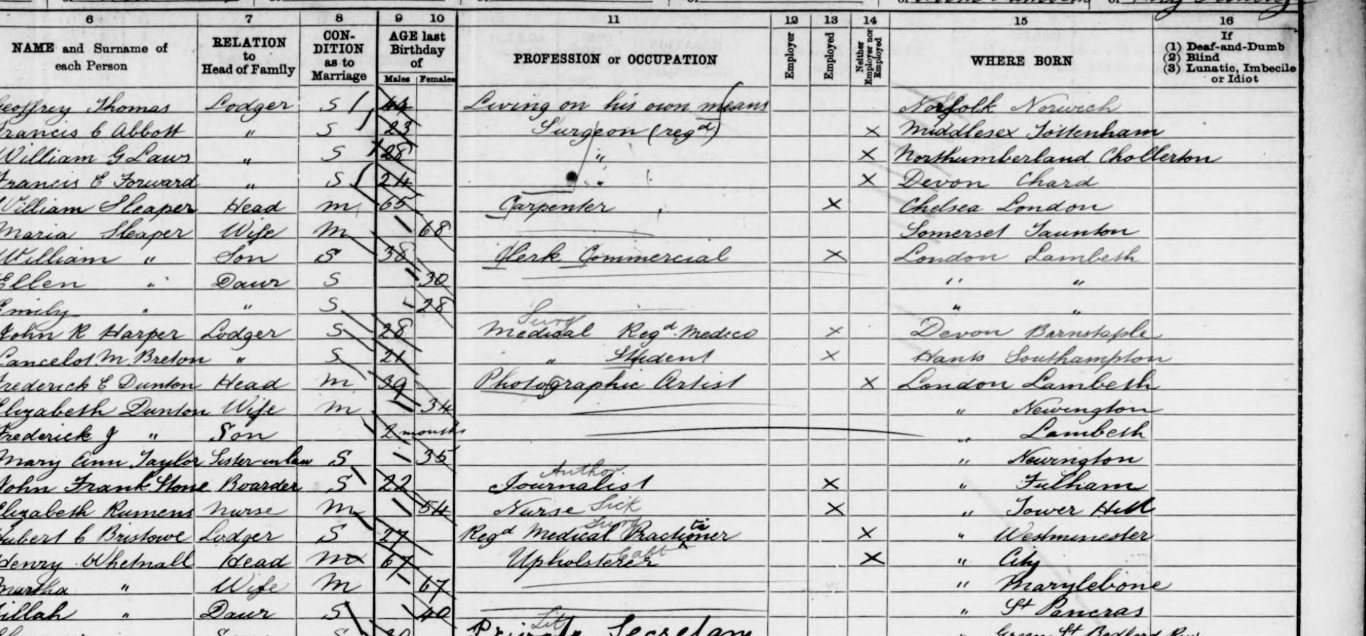 6 7 8 9 10 11 12 13 14 15 16
NAME and Surname of each Person RELATION to Head of Family CON-DITION as to Marriage AGE last Birthday of PROFESSION or OCCUPATION Employer Employed Neither Employer nor Employed WHERE BORN If (1) Deaf-and-Dumb (2) Blind (3) Lunatic, Imbecile or Idiot
Males Females
eoffrey Thomas Lodger S 44 Living on his own means Norfolk Norwich
rancis C Abbott " S 23 Surgeon (regd) x Middlesex Tottenham
William G Laws " S 28 " x Northumberland Chollerton
Francis E Forward " S 24 " x Devon Chard
William Sleaper Head M 65 Carpenter x Chelsea London
Maria Sleaper Wife M 68 Somerset Taunton
William " Son S 38 Clerk Commercial x London Lambeth
Ellen " Daur S 30 " "
Emily " " S 28 " "
John R Harper Lodger S 28 Medical Surg Regd Medico x Devon Barnstaple
Lancelot M Breton " S 21 " Student x Hants Southampton
rederick E Dunton Head M 29 Photographic Artist x London Lambeth
Elizabeth Dunton Wife M 34 " Newington
rederick J " Son 2 months " Lambeth
Mary Ann Taylor Sister in law S 35 " Newington
John Frank Stone Boarder S 22 Author Journalist x " Fulham
Elizabeth Rumens Nurse M 54 Nurse Sick x " Tower Hill
ubert C Bristowe Lodger S 27 Regd Medical Surg Practitioner x " Westminster
Henry Whetnall Head M 67 Upholsterer x " City
Martha " Wife M 67 " Marylebone
illah " Daur S 40 " St Pancras
Private Secretary